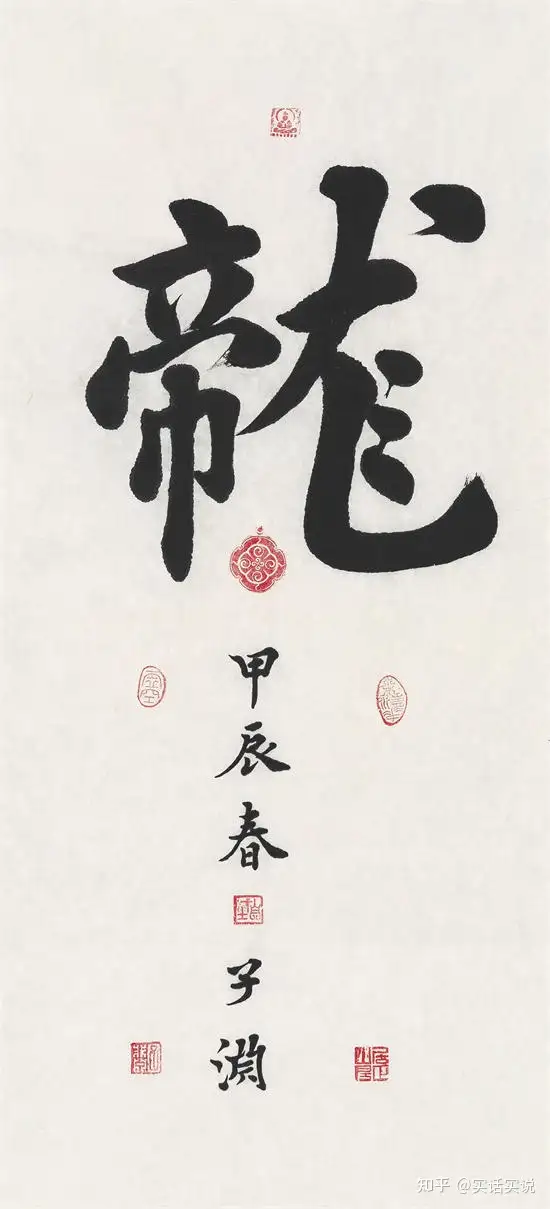 龍
甲辰春
子渊
知乎 @实话实说